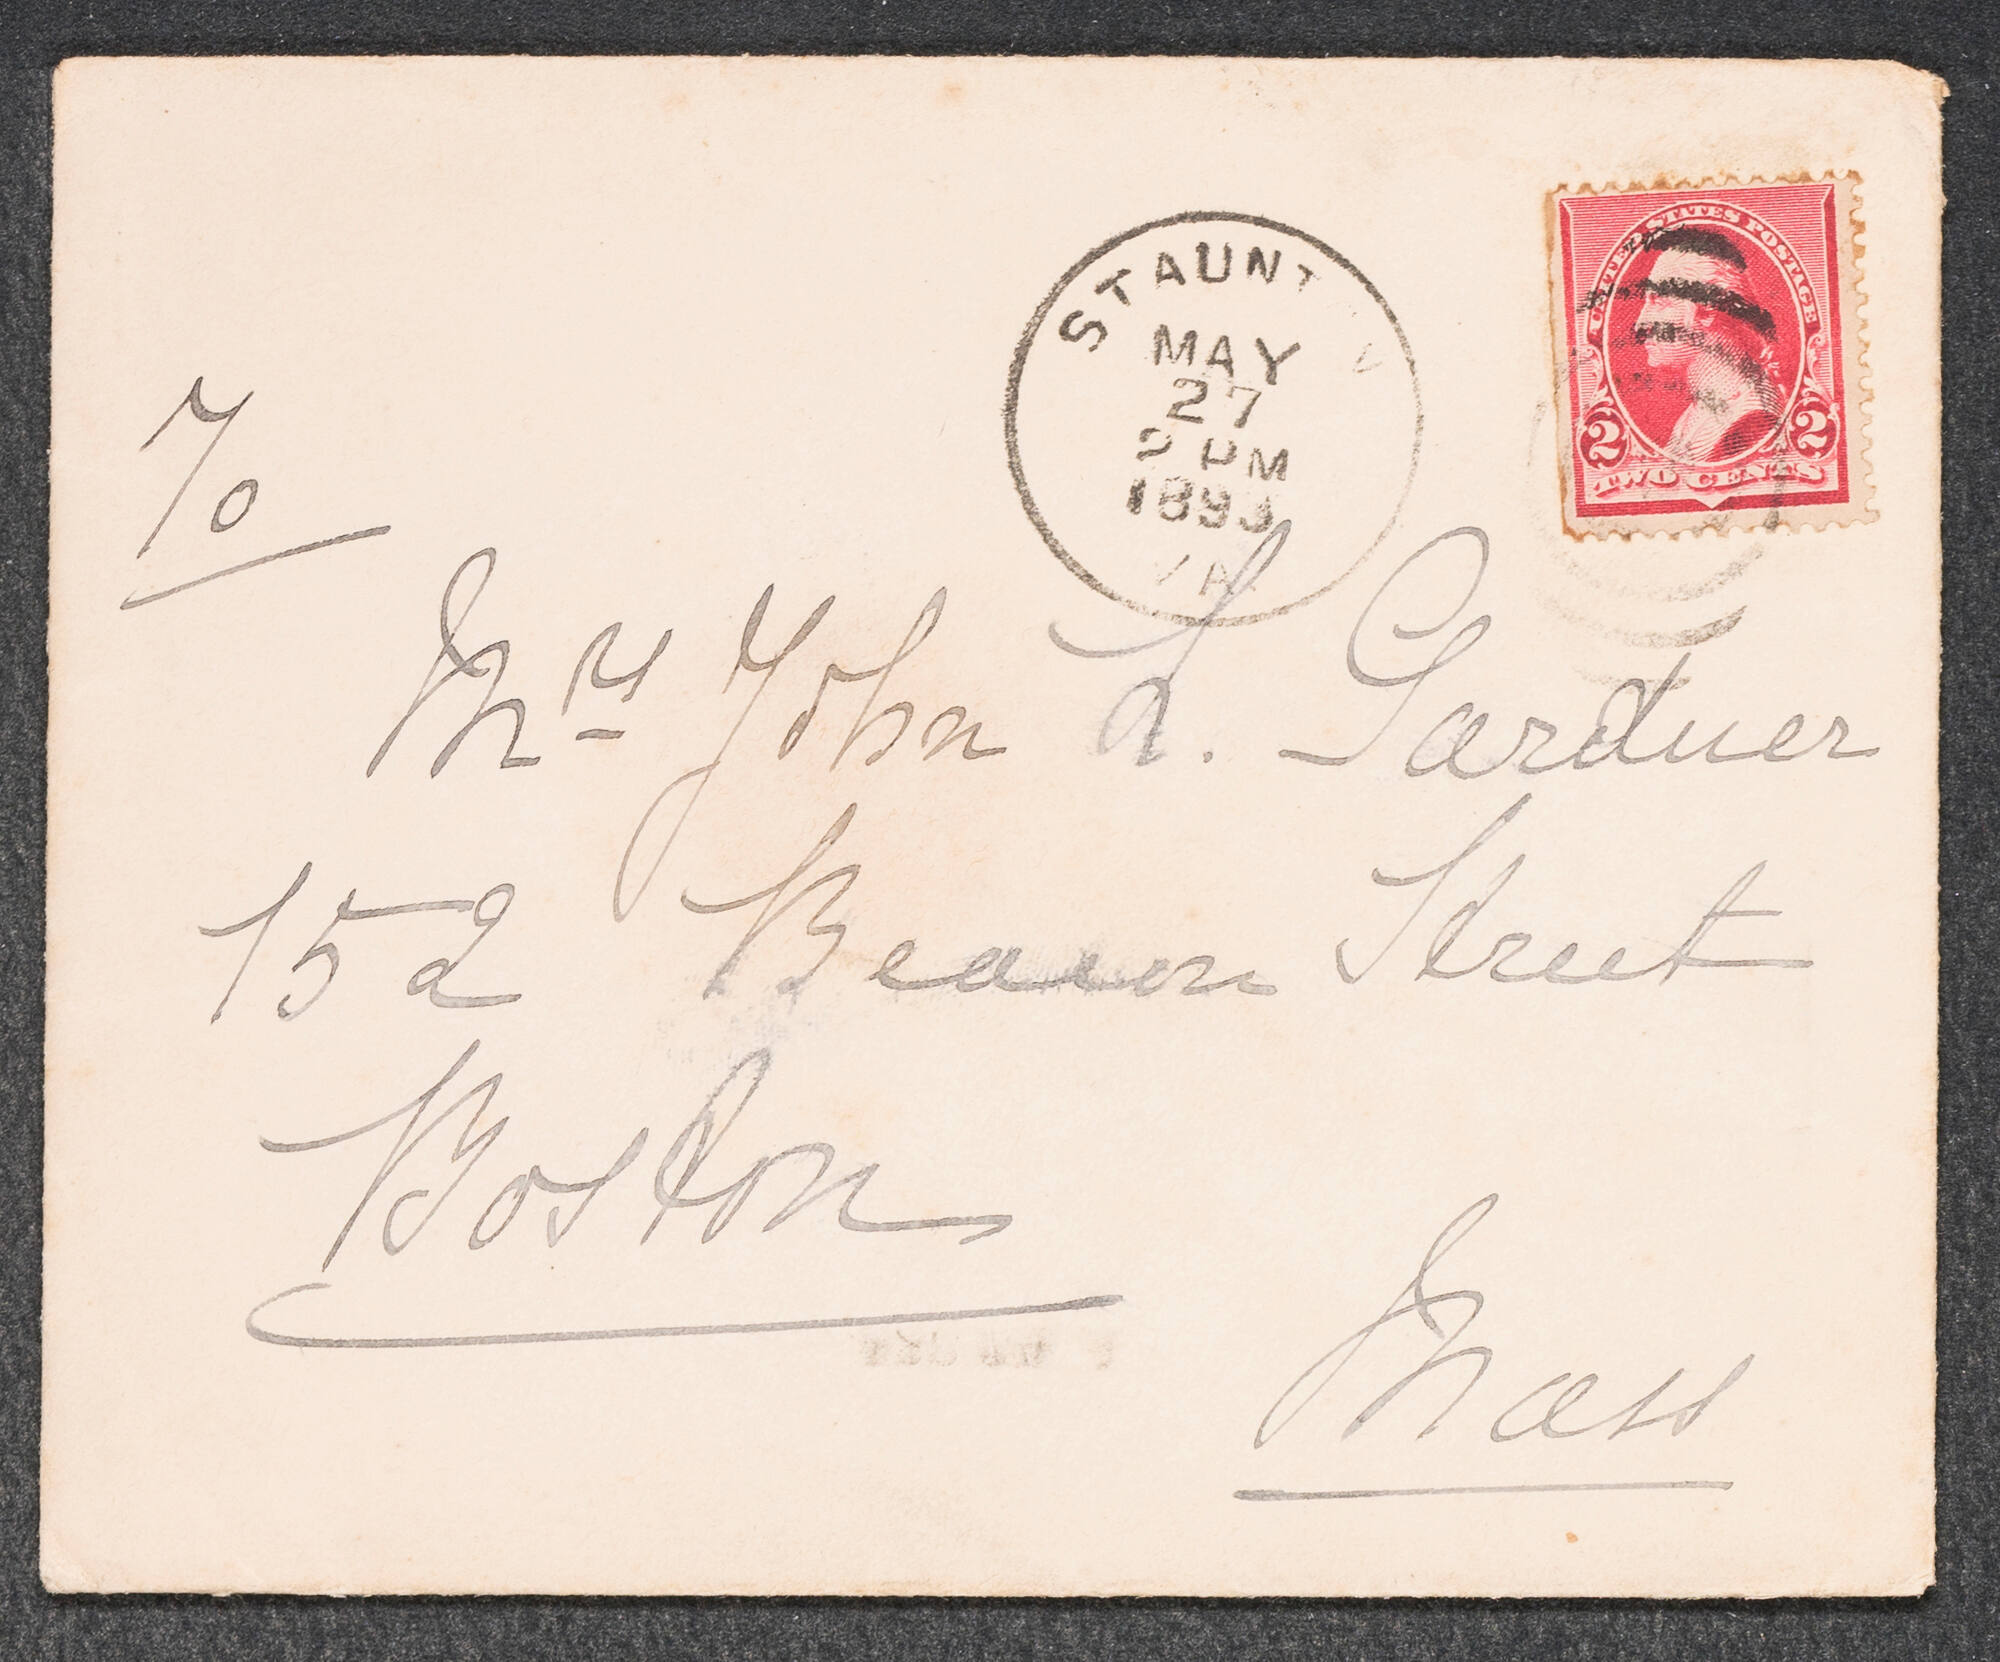 STAUNTON
MAY
27
PM
1893
VA
UNITED STATES POSTAGE
2 2
TWO CENTS
To
Mrs John L. Gardner
152 Beacon Street
Boston
Mass